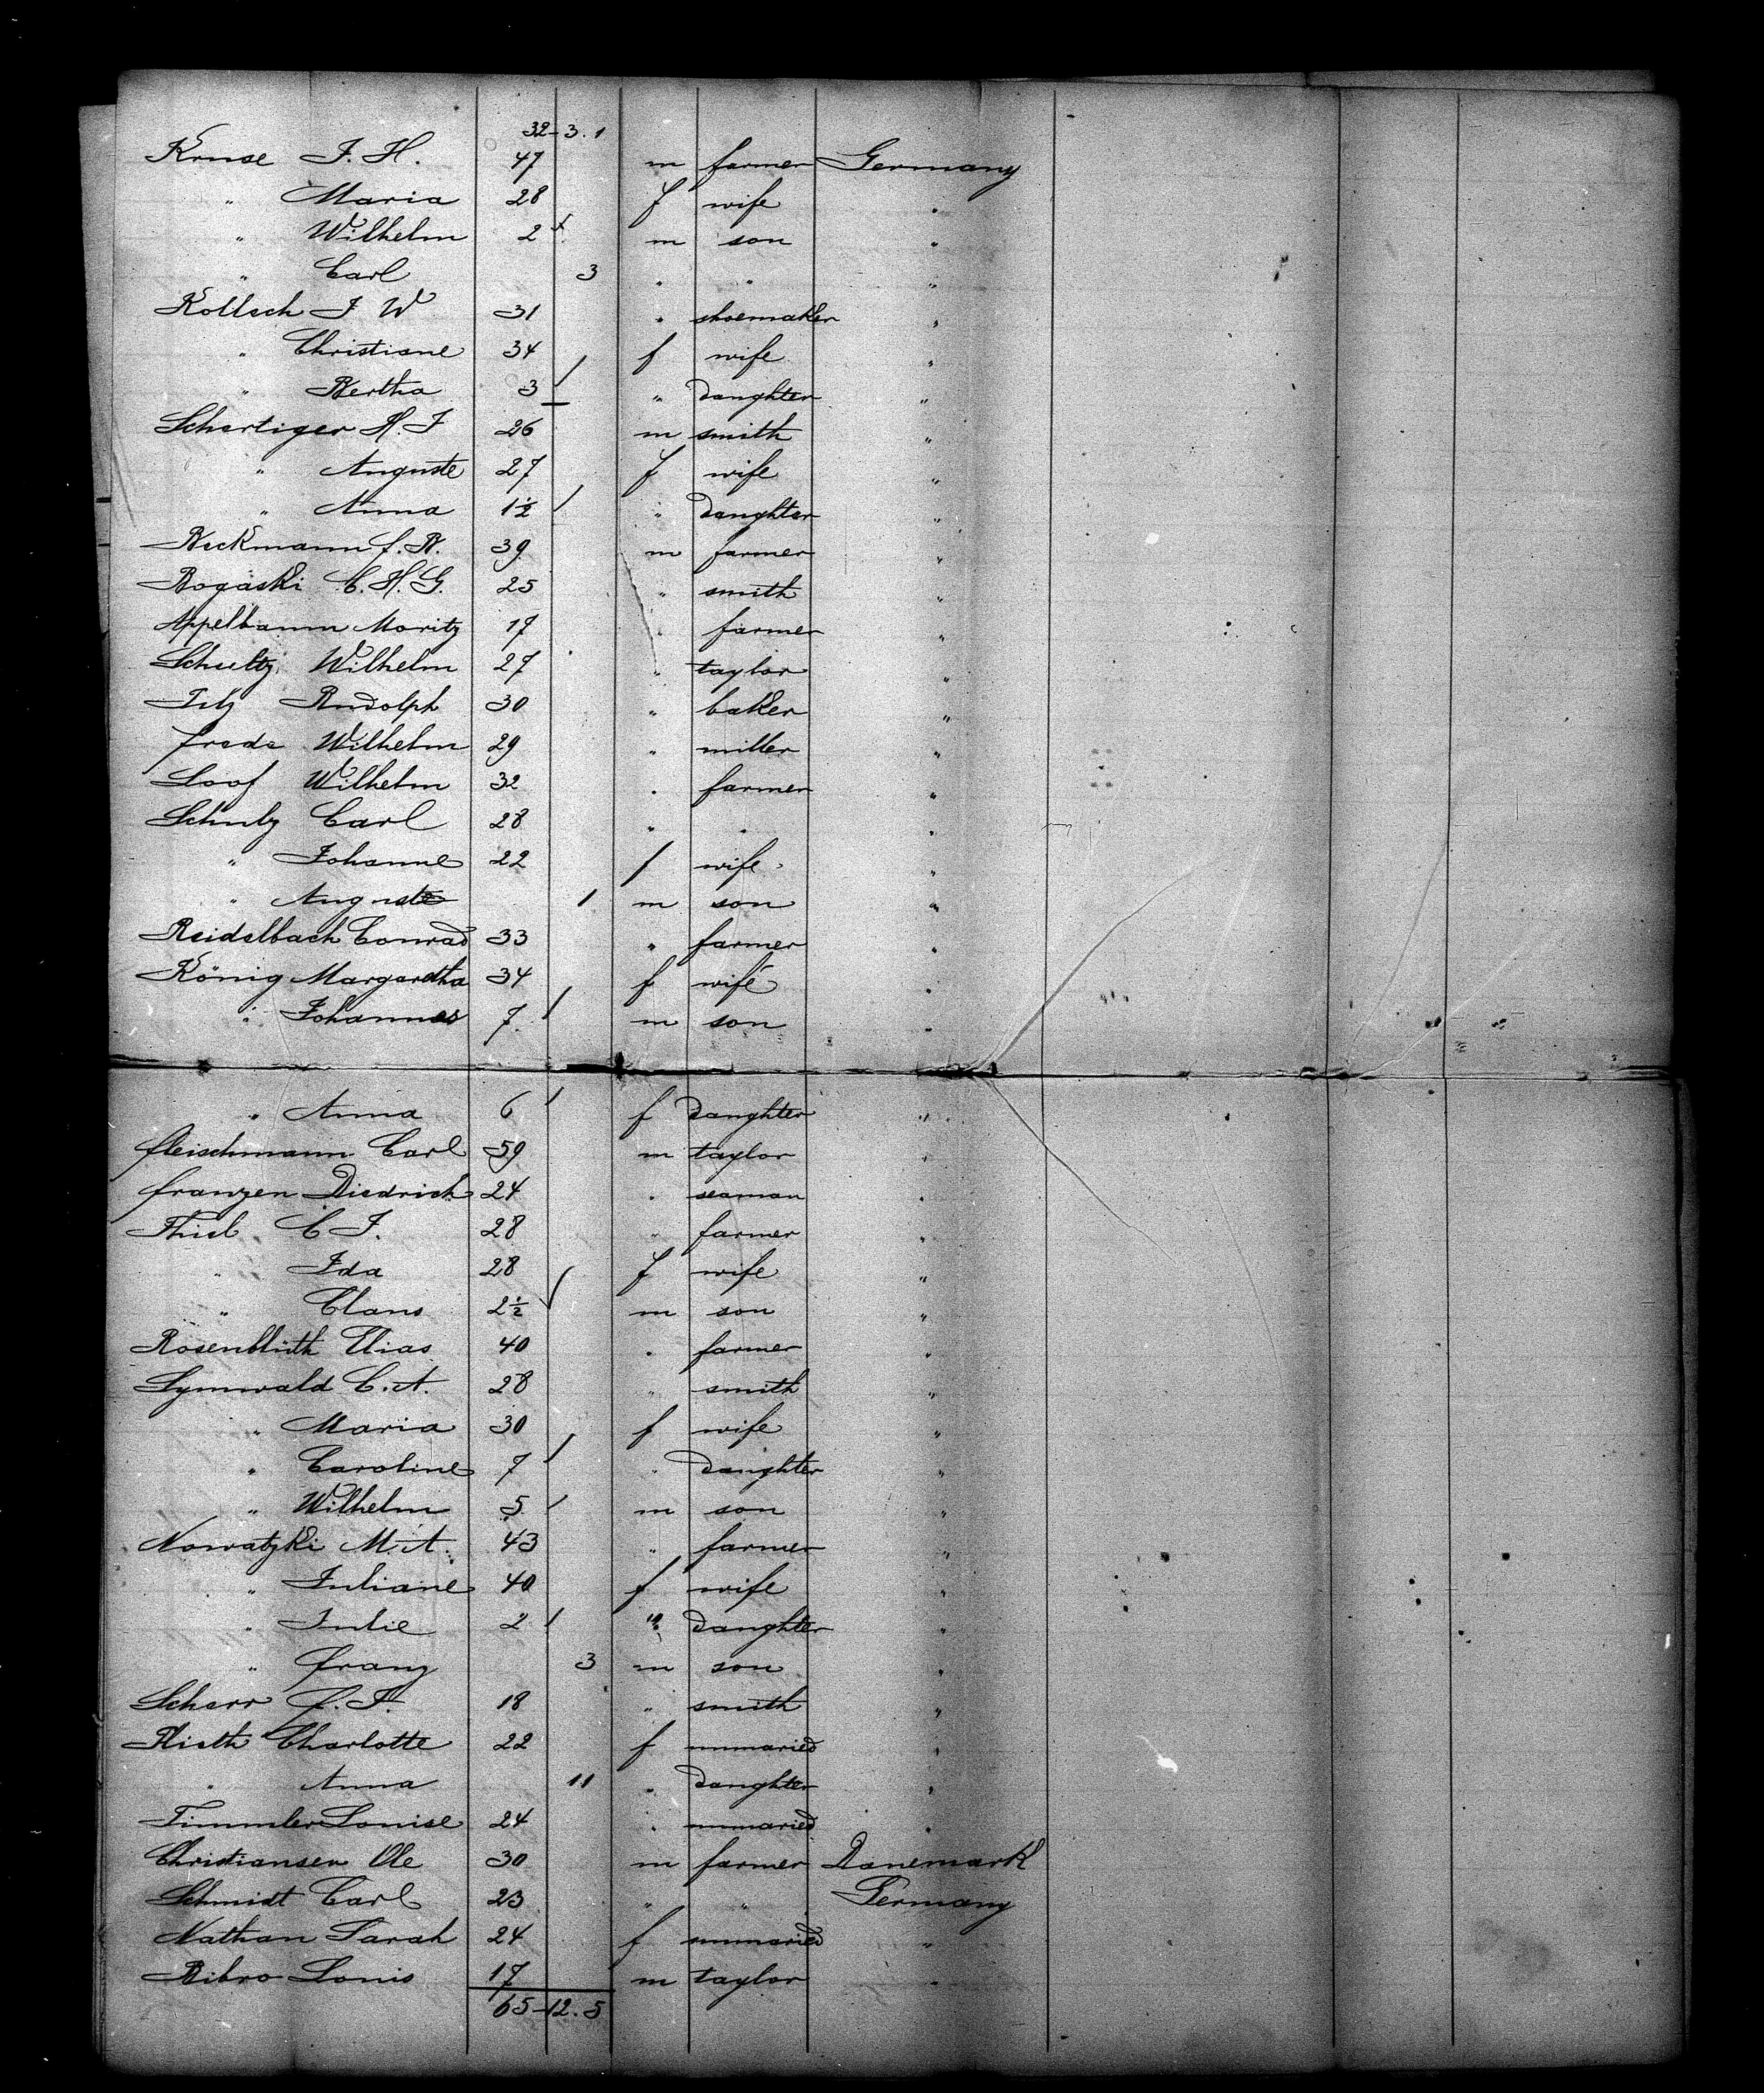 32-3.1
Kruse J. H. 47 m farmer Germany
" Maria 28 f wife "
" Wilhelm 2 m son "
" Carl 3 " " "
Kollsch J W 31 " shoemaker "
" Christiane 34 f wife "
" Bertha 3 / " daughter "
Schertiger H. J 26 m smith "
" Auguste 27 f wife "
" Anna 1½ / " daughter "
Beckmann f. B. 39 m farmer "
Rogaski C. H. G. 25 " smith "
Appelbaum Moritz 17 " farmer "
Schultz Wilhelm 27 " taylor "
Rudolph 30 " baker "
frede Wilhelm 29 " miller "
Loof Wilhelm 32 " farmer "
Schulz Carl 28 " " "
" Johanne 22 f wife "
" Auguste 1 m son "
Reidelbach Conrad 33 " farmer "
König Margaretha 34 f wife "
" Johannes 7 / m son "
" Anna 6 / f daughter "
fleischmann Carl 59 m taylor "
franzen Diedrich 24 " seaman "
Thiel C J. 28 " farmer "
" Ida 28 f wife "
" Claus 2½ √ m son "
Rosenblüth Elias 40 " farmer "
Lymwald C. A. 28 " smith "
" Maria 30 f wife "
" Caroline 7 / " daughter "
" Wilhelm 5 / m son "
Nowatzki M. A. 43 " farmer "
" Juliane 40 f wife "
" Julie 2 / " daughter "
" franz 3 m son "
Scherr f. F. 18 " smith "
Rieth Charlotte 22 f unmaried "
" Anna 11 " daughter "
Timmler Louise 24 " unmaried "
Christiansen Ole 30 m farmer Danemark
Schmidt Carl 23 " " Germany
Nathan Sarah 24 f unmaried "
Ribro Louis 17 m taylor "
65-12.5